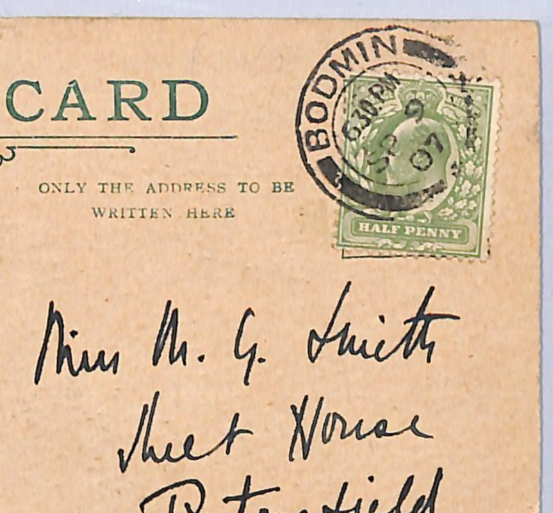 CARD
ONLY THE ADDRESS TO BE
WRITTEN HERE
BODMIN
6.30 PM
SP 9
07
HALF PENNY
Miss M. G. Smith
Sheet House
Petersfield